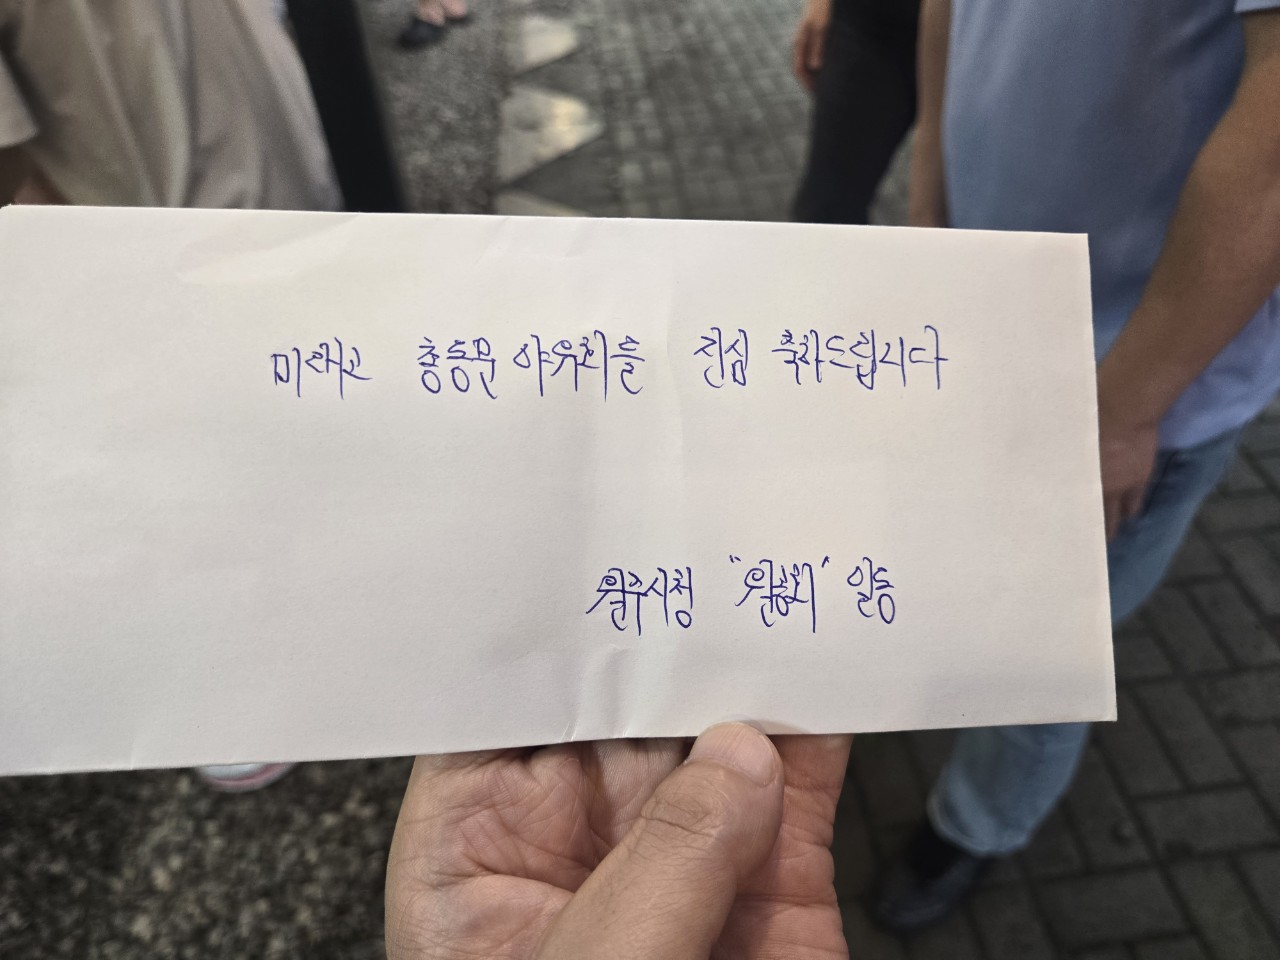 미래고 총동문 야유회를 진심 축하드립니다
원주시청 "원총회" 일동